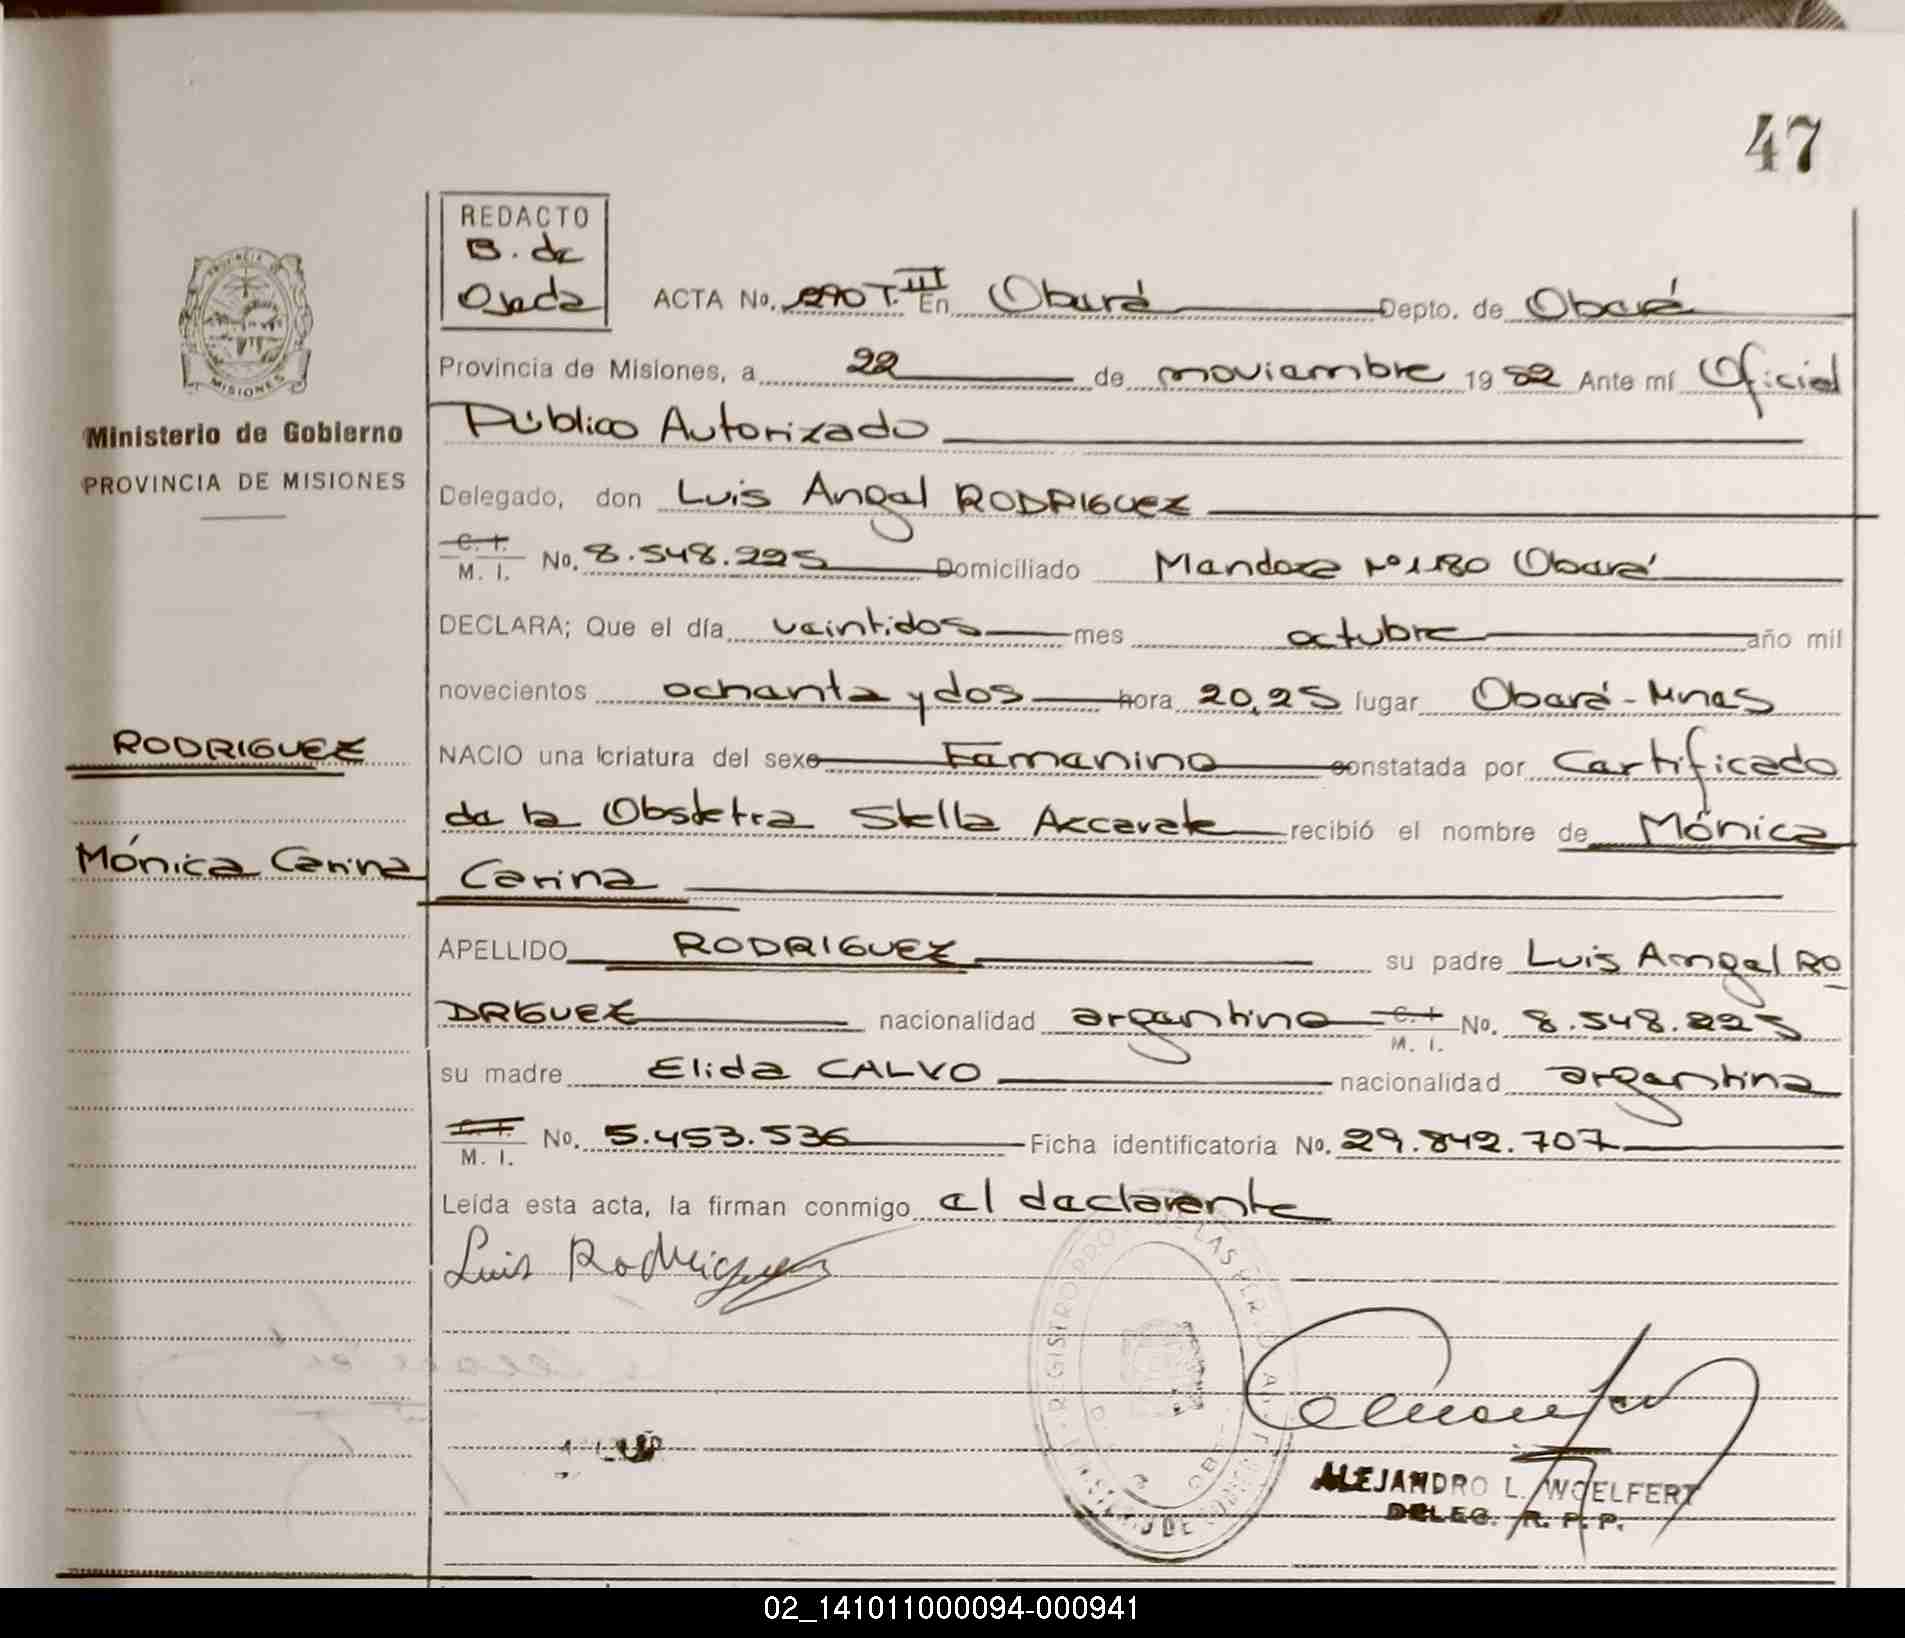 47
REDACTO
B. de
Ojeda
ACTA No. 290 T. III En Oberá Depto. de Oberá
Provincia de Misiones, a 22 de noviembre 19 82 Ante mí Oficial
Público Autorizado
Delegado, don Luis Angel RODRIGUEZ
C. I.
M. I. No. 8.548.225 Domiciliado Mendoza Nº 1180 Oberá
DECLARA; Que el día veintidos mes octubre año mil
novecientos ochenta y dos hora 20,25 lugar Oberá - Mnes
NACIO una criatura del sexo Femenino constatada por Certificado
de la Obstetra Stella recibió el nombre de Mónica
Carina
APELLIDO RODRIGUEZ su padre Luis Angel RO
DRIGUEZ nacionalidad argentino C. I.
M. I. No. 8.548.225
su madre Elida CALVO nacionalidad argentina
C. I.
M. I. No. 5.453.536 Ficha identificatoria No. 29.842.707
Leída esta acta, la firman conmigo el declarente
Luis Rodriguez
ALEJANDRO L. WOELFERT
DELEG. R. P. P.
PROVINCIA DE
MISIONES
Ministerio de Gobierno
PROVINCIA DE MISIONES
RODRIGUEZ
Mónica Carina
02_141011000094-000941